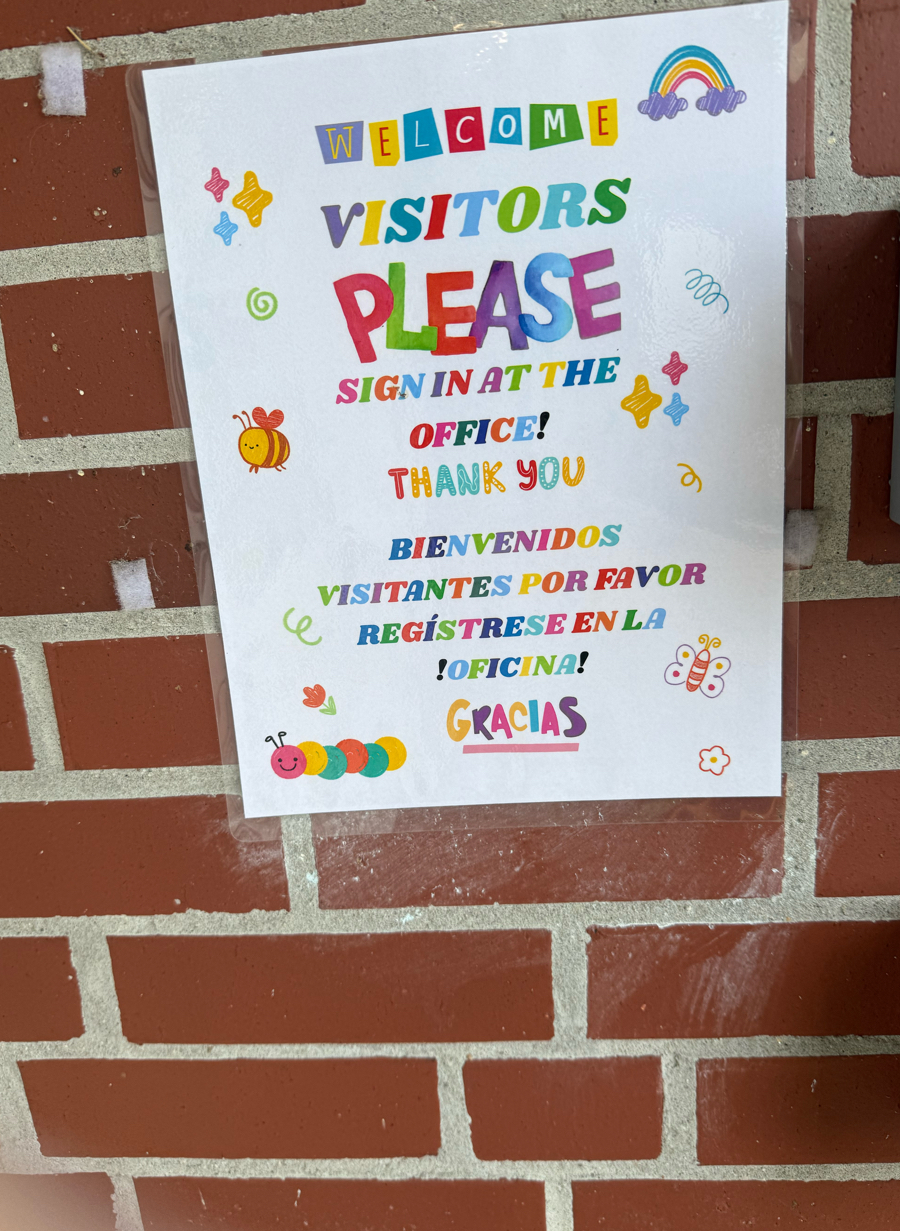 WELCOME
VISITORS
PLEASE
SIGN IN AT THE
OFFICE!
THANK YOU
BIENVENIDOS
VISITANTES POR FAVOR
REGÍSTRESE EN LA
!OFICINA!
GRACIAS